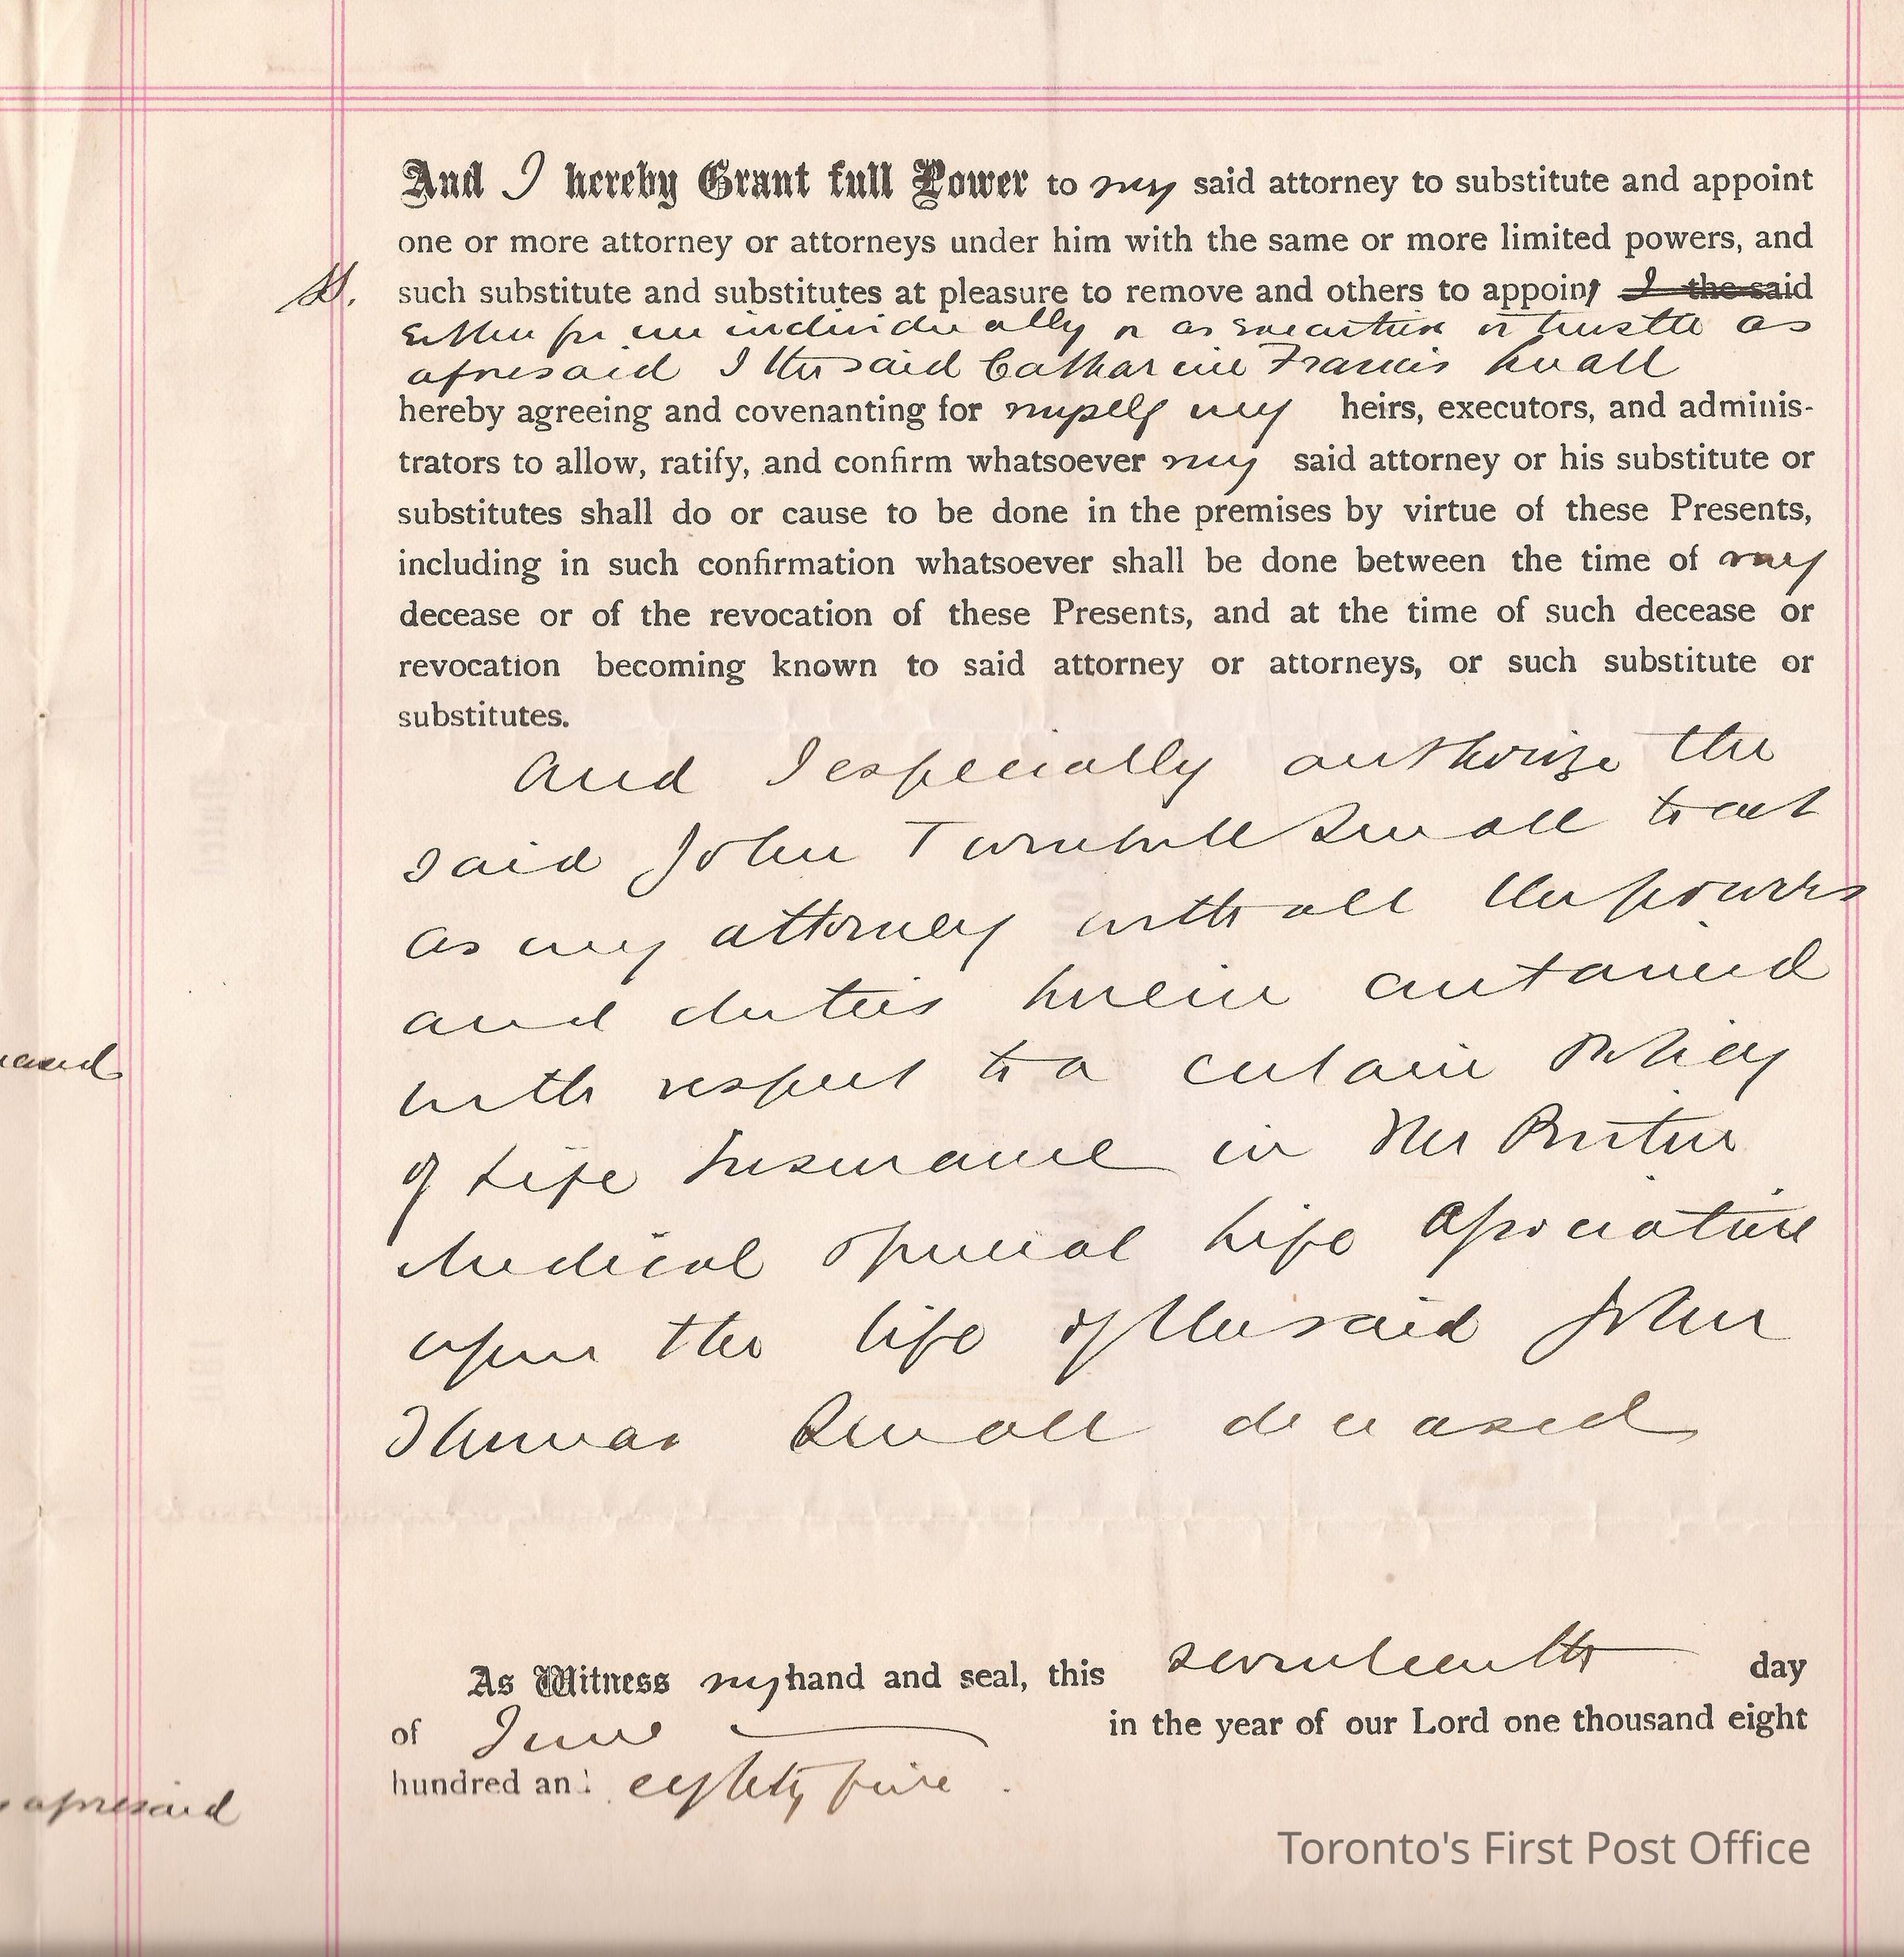 And I hereby Grant full Power to my said attorney to substitute and appoint
one or more attorney or attorneys under him with the same or more limited powers, and
such substitute and substitutes at pleasure to remove and others to appoint I the said
Either for me individually or as executrix or trustee as
aforesaid I the said Catharine Francis Small
hereby agreeing and covenanting for myself my heirs, executors, and adminis-
trators to allow, ratify, and confirm whatsoever my said attorney or his substitute or
substitutes shall do or cause to be done in the premises by virtue of these Presents,
including in such confirmation whatsoever shall be done between the time of my
decease or of the revocation of these Presents, and at the time of such decease or
revocation becoming known to said attorney or attorneys, or such substitute or
substitutes.
And I especially authorize the
said John Turnbull Small to act
as my attorney with all the powers
and duties herein contained
with respect to a certain Policy
of Life Insurance in The Briton
Medical General Life Association
upon the life of the said John
Thomas Small deceased
As Witness my hand and seal, this seventeenth day
of June in the year of our Lord one thousand eight
hundred and eighty five.
aforesaid
Toronto's First Post Office